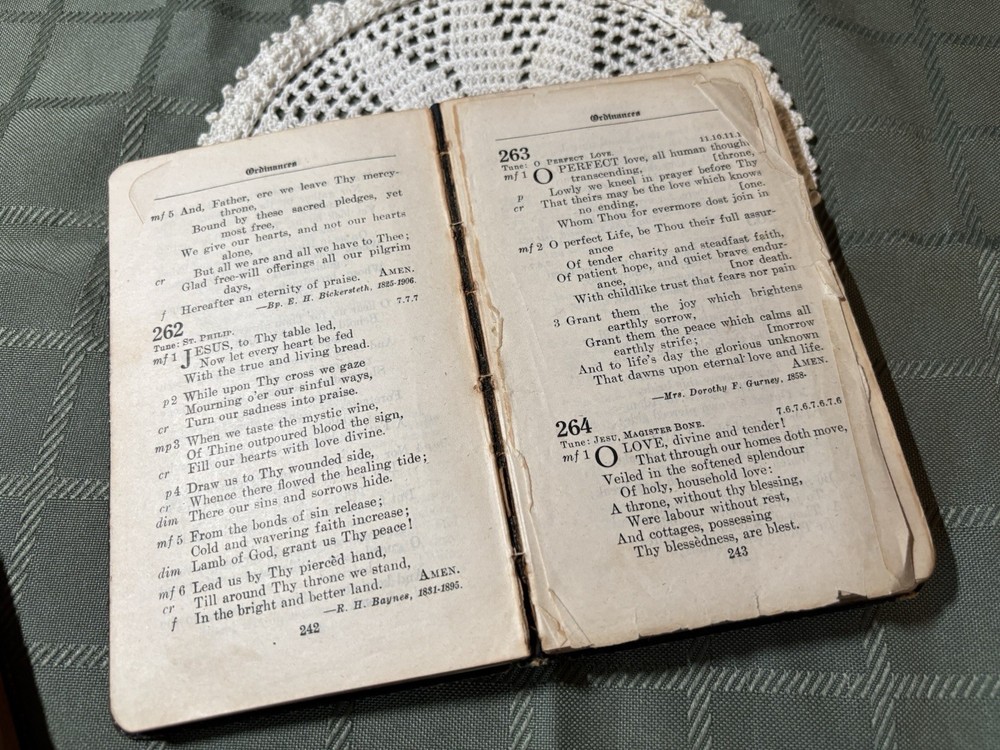 Ordinances
mf 5 And, Father, ere we leave Thy mercy-
throne,
Bound by these sacred pledges, yet
most free,
We give our hearts, and not our hearts
alone,
But all we are and all we have to Thee;
cr Glad free-will offerings all our pilgrim
days,
f Hereafter an eternity of praise. AMEN.
—Bp. E. H. Bickersteth, 1825-1906.
262 7.7.7
Tune: ST. PHILIP.
mf 1 JESUS, to Thy table led,
Now let every heart be fed
With the true and living bread.
p 2 While upon Thy cross we gaze
Mourning o'er our sinful ways,
cr Turn our sadness into praise.
mp 3 When we taste the mystic wine,
Of Thine outpoured blood the sign,
cr Fill our hearts with love divine.
p 4 Draw us to Thy wounded side,
cr Whence there flowed the healing tide;
dim There our sins and sorrows hide.
mf 5 From the bonds of sin release;
Cold and wavering faith increase;
dim Lamb of God, grant us Thy peace!
mf 6 Lead us by Thy piercèd hand,
cr Till around Thy throne we stand,
f In the bright and better land. AMEN.
—R. H. Baynes, 1831-1895.
242
Ordinances
263 11.10.11.1
Tune: O PERFECT LOVE.
mf 1 O PERFECT love, all human though
transcending, [throne,
p Lowly we kneel in prayer before Thy
cr That theirs may be the love which knows
no ending, [one.
Whom Thou for evermore dost join in
mf 2 O perfect Life, be Thou their full assur-
ance
Of tender charity and steadfast faith,
Of patient hope, and quiet brave endur-
ance, [nor death.
With childlike trust that fears nor pain
3 Grant them the joy which brightens
earthly sorrow,
Grant them the peace which calms all
earthly strife; [morrow
And to life's day the glorious unknown
That dawns upon eternal love and life.
AMEN.
—Mrs. Dorothy F. Gurney, 1858-
264 7.6.7.6.7.6.7.6
Tune: JESU, MAGISTER BONE.
mf 1 O LOVE, divine and tender!
That through our homes doth move,
Veiled in the softened splendour
Of holy, household love:
A throne, without thy blessing,
Were labour without rest,
And cottages, possessing
Thy blessèdness, are blest.
243